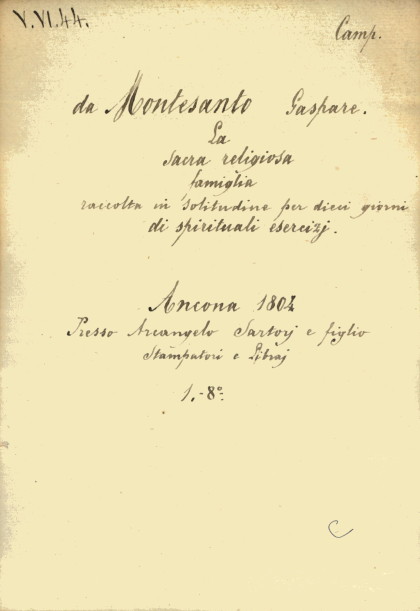 V.VI.44.
Camp.
da Montesanto Gaspare.
La
sacra religiosa
famiglia
raccolta in solitudine per dieci giorni
di spirituali esercizj.
Ancona 1804
Presso Arcangelo Sartorj e figlio
Stampatori e Libraj
1.-8º.
C